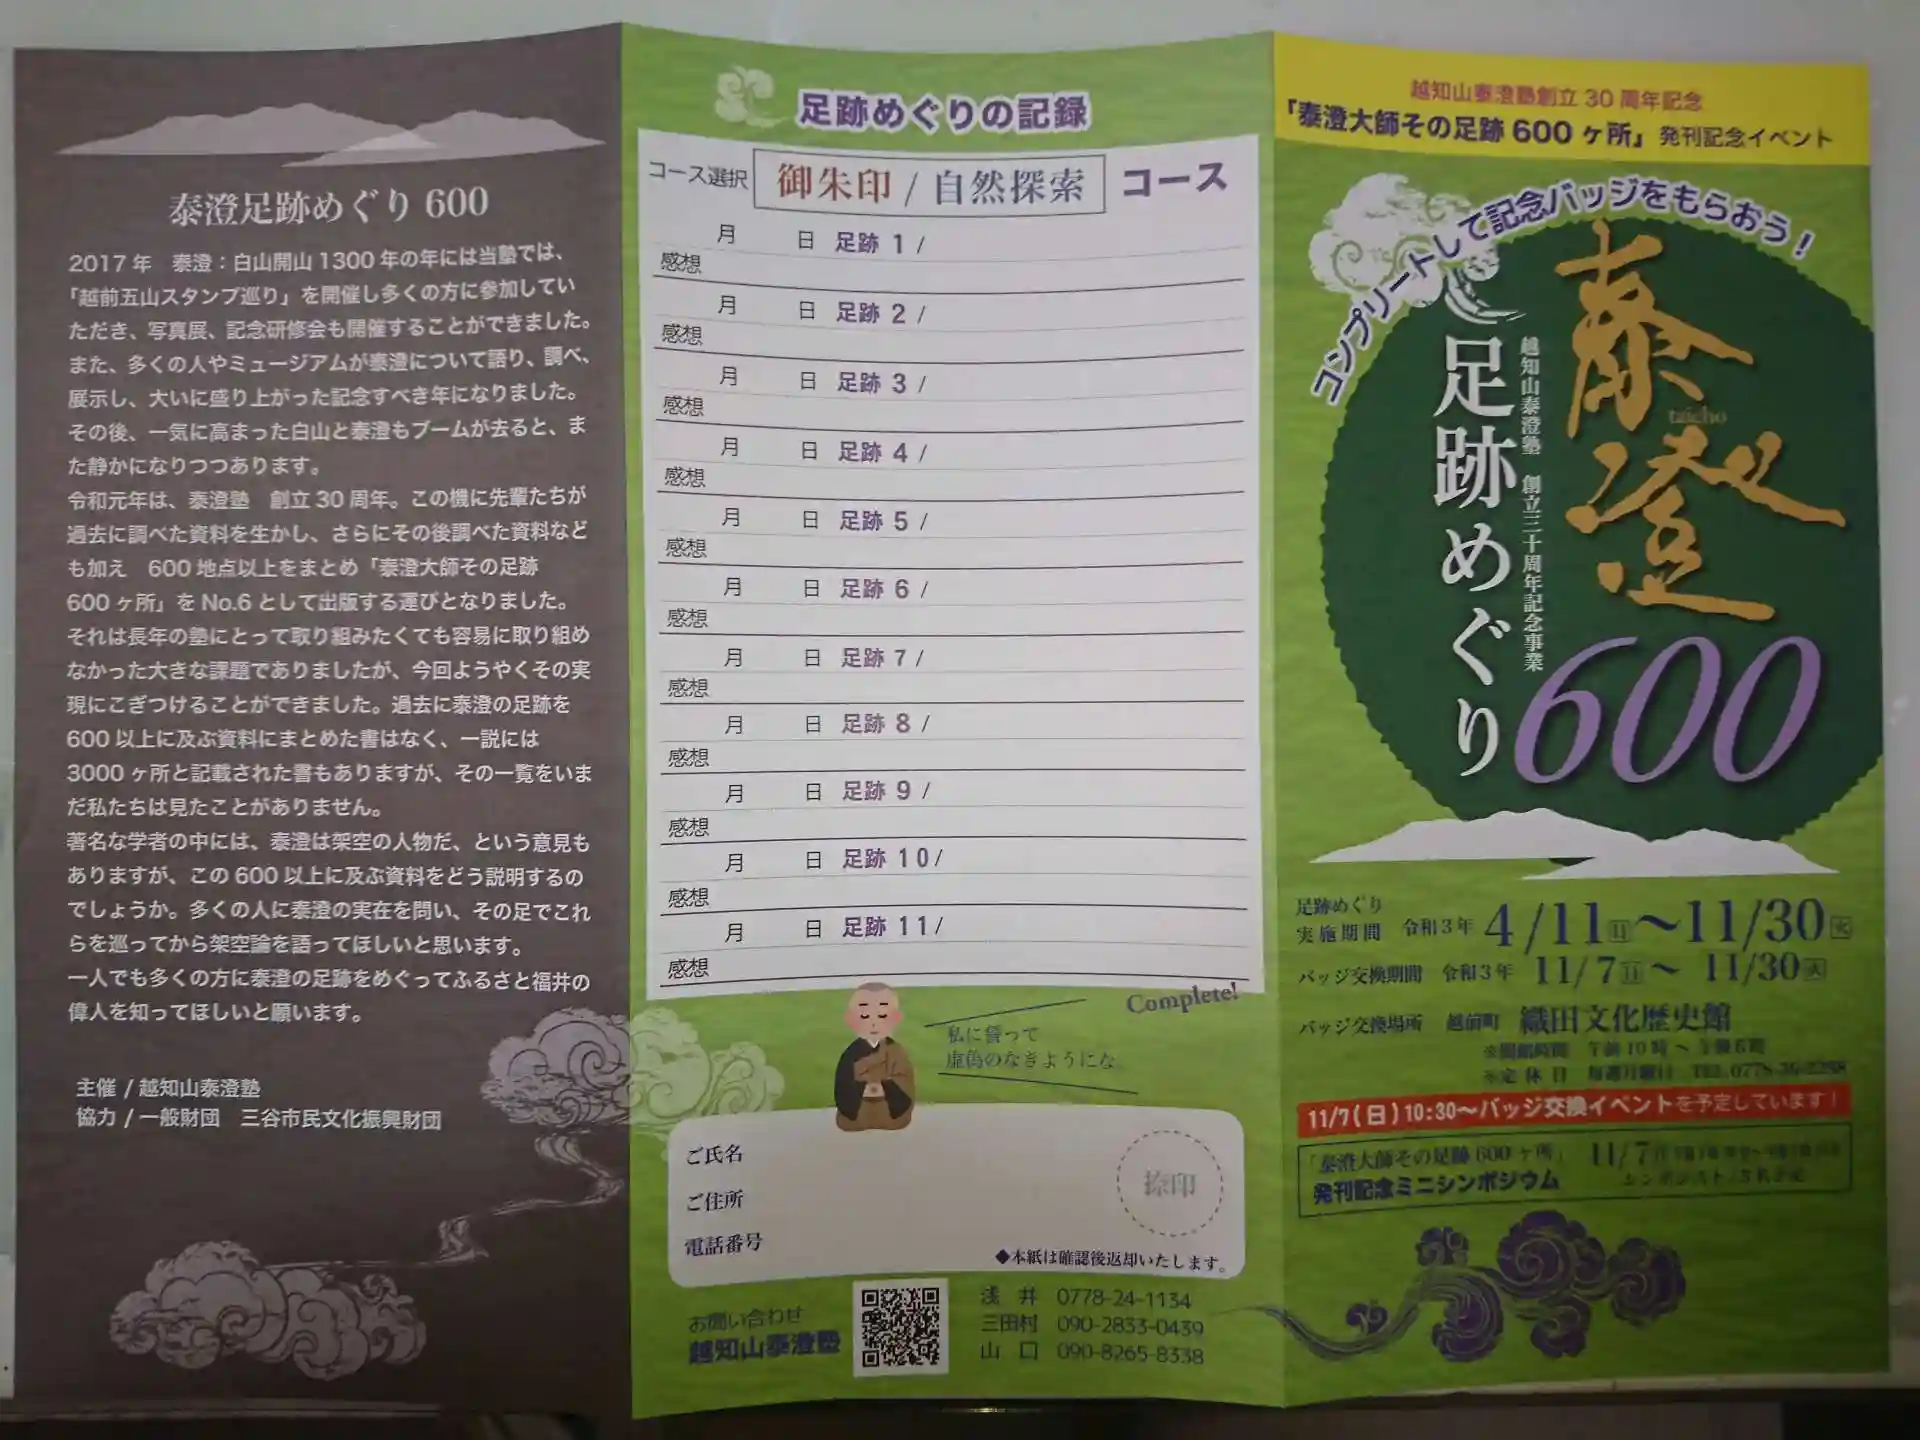 泰澄足跡めぐり 600
2017 年　泰澄：白山開山 1300 年の年には当塾では、
「越前五山スタンプ巡り」を開催し多くの方に参加してい
ただき、写真展、記念研修会も開催することができました。
また、多くの人やミュージアムが泰澄について語り、調べ、
展示し、大いに盛り上がった記念すべき年になりました。
その後、一気に高まった白山と泰澄もブームが去ると、ま
た静かになりつつあります。
令和元年は、泰澄塾　創立 30 周年。この機に先輩たちが
過去に調べた資料を生かし、さらにその後調べた資料など
も加え　600 地点以上をまとめ「泰澄大師その足跡
600 ヶ所」を No.6 として出版する運びとなりました。
それは長年の塾にとって取り組みたくても容易に取り組め
なかった大きな課題でありましたが、今回ようやくその実
現にこぎつけることができました。過去に泰澄の足跡を
600 以上に及ぶ資料にまとめた書はなく、一説には
3000 ヶ所と記載された書もありますが、その一覧をいま
だ私たちは見たことがありません。
著名な学者の中には、泰澄は架空の人物だ、という意見も
ありますが、この 600 以上に及ぶ資料をどう説明するの
でしょうか。多くの人に泰澄の実在を問い、その足でこれ
らを巡ってから架空論を語ってほしいと思います。
一人でも多くの方に泰澄の足跡をめぐってふるさと福井の
偉人を知ってほしいと願います。
主催 / 越知山泰澄塾
協力 / 一般財団　三谷市民文化振興財団
足跡めぐりの記録
コース選択 御朱印 / 自然探索 コース
月　日 足跡 1 /
感想
月　日 足跡 2 /
感想
月　日 足跡 3 /
感想
月　日 足跡 4 /
感想
月　日 足跡 5 /
感想
月　日 足跡 6 /
感想
月　日 足跡 7 /
感想
月　日 足跡 8 /
感想
月　日 足跡 9 /
感想
月　日 足跡 10 /
感想
月　日 足跡 11 /
感想
Complete!
私に誓って
虚偽のなきようにな。
ご氏名
ご住所
電話番号
捺印
◆本紙は確認後返却いたします。
お問い合わせ
越知山泰澄塾
浅　井　0778-24-1134
三田村　090-2833-0439
山　口　090-8265-8338
越知山泰澄塾創立 30 周年記念
「泰澄大師その足跡 600 ヶ所」発刊記念イベント
コンプリートして記念バッジをもらおう！
泰澄
taicho
600
越知山泰澄塾　創立三十周年記念事業
足跡めぐり
足跡めぐり
実施期間　令和３年 4/11㊐〜11/30㊋
バッジ交換期間　令和３年 11/7㊐〜 11/30㊋
バッジ交換場所　越前町　織田文化歴史館
※開館時間　午前 10 時〜
※定休日　毎週月曜日　TEL
11/7(日)10:30〜バッジ交換イベントを予定しています！
「泰澄大師その足跡 600 ヶ所」 11/7
発刊記念ミニシンポジウム